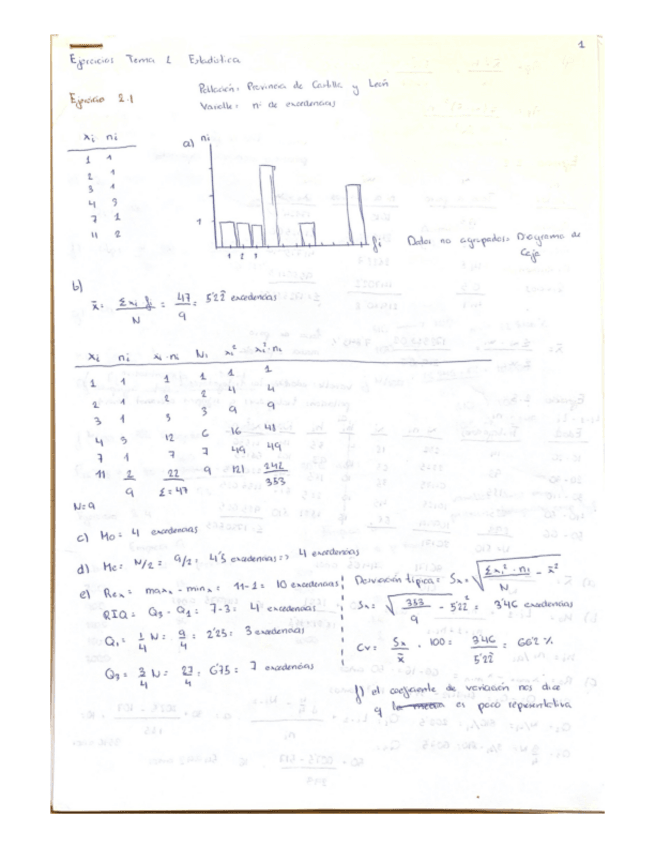 1
Ejercicios Tema 2 Estadística
Población: Provincia de Castilla y León
Ejercicio 2.1
Variable: nº de excedencias
xi ni
1 1
2 1
3 1
4 3
7 1
11 2
a) ni
1
1 2 3
Datos no agrupados: Diagrama de
Caja
b)
x̄ = Σxi fi / N = 47/9 = 5'22 excedencias
xi ni xi·ni Ni xi² xi²·ni
1 1 1 1 1 1
2 1 2 2 4 4
3 1 3 3 9 9
4 3 12 6 16 48
7 1 7 7 49 49
11 2 22 9 121 242
9 Σ=47 353
N=9
c) Mo = 4 excedencias
d) Me = N/2 = 9/2 = 4'5 excedencias => 4 excedencias
e) Rex = maxx - minx = 11-1 = 10 excedencias
RIQ = Q3 - Q1 = 7-3 = 4 excedencias
Q1 = 1/4 N = 9/4 = 2'25 = 3 excedencias
Q3 = 3/4 N = 27/4 = 6'75 = 7 excedencias
Desviación típica = Sx = √(Σxi²·ni / N - x̄²)
Sx = √(353/9 - 5'22²) = 3'46 excedencias
Cv = Sx/x̄ · 100 = 3'46/5'22 = 66'2 %
f) el coeficiente de variación nos dice
q la media es poco representativa